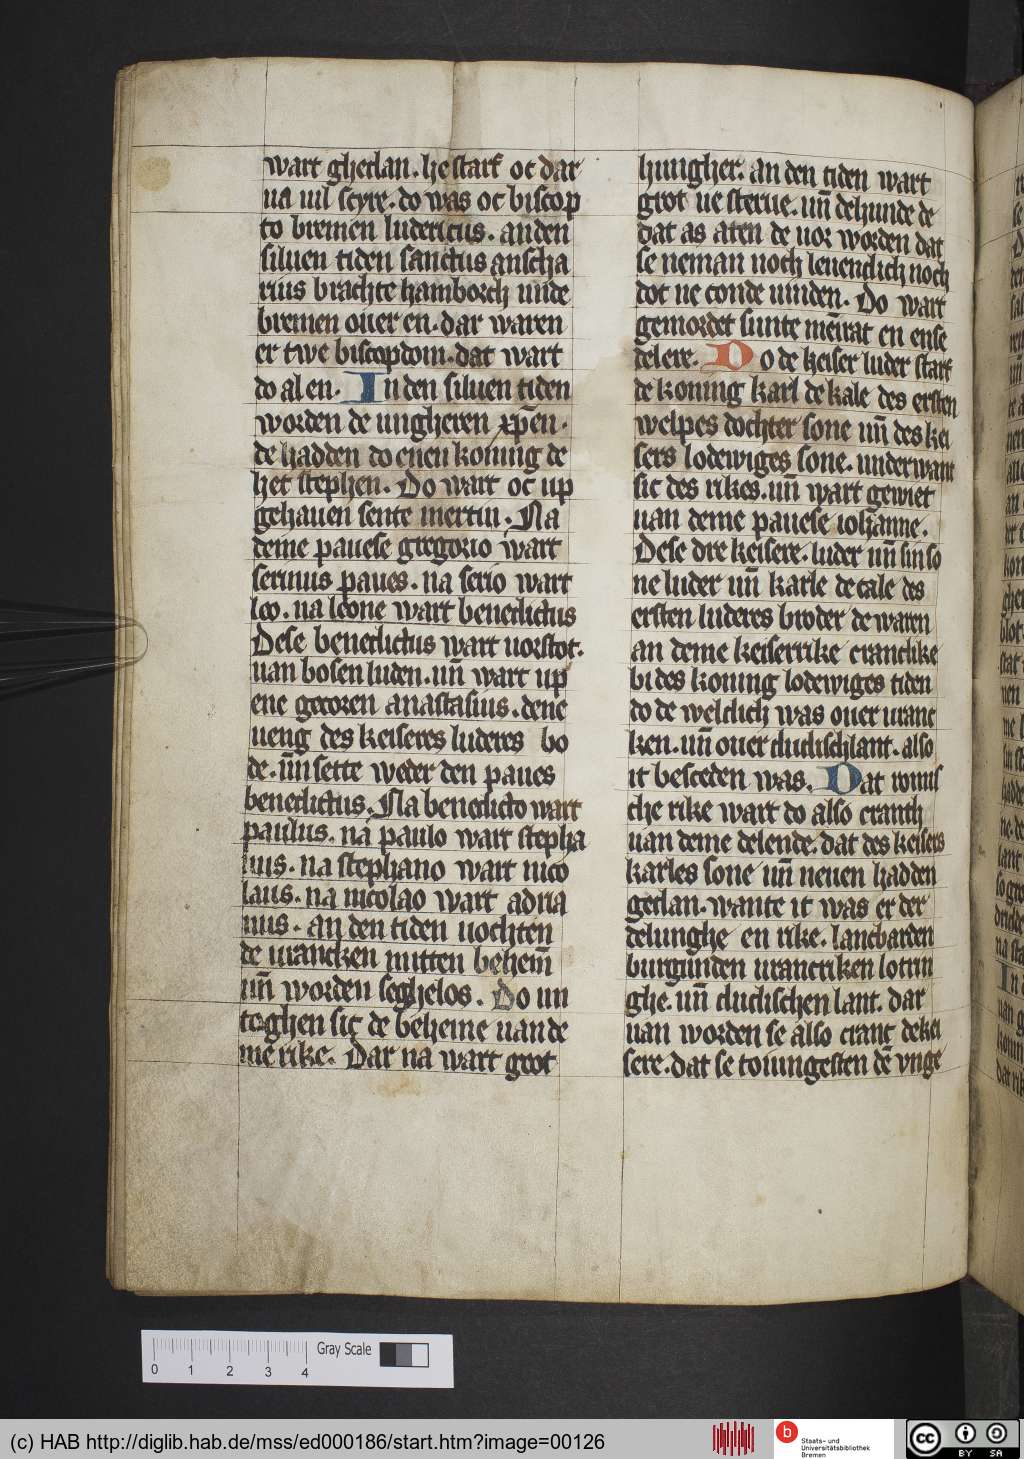 wart ghedan. he starf oc dar
na uil scyre. do was oc biscop
to bremen ludericus. anden
siluen tiden sanctus anscha
rius brachte hamborch unde
bremen ouer en. dar waren
er twe biscopdom. dat wart
do al en. In den siluen tiden
worden de ungheren xp̄en.
de hadden do enen koning de
het stephen. Do wart oc up
gehauen sente mertin. Na
deme pauese gregorio wart
serinus paues. na serio wart
leo. na leone wart benedictus
Dese benedictus wart uorstot.
uan bosen luden. un̄ wart up
ene gecoren anastasius. dene
ueng des keiseres luderes bo
de. un̄ sette weder den paues
benedictus. Na benedicto wart
paulus. na paulo wart stepha
nus. na stephano wart nico
laus. na nicolao wart adria
nus. an den tiden uochten
de urancken mitten behem̄
un̄ worden seghelos. Do un
toghen sic de beheme uan de
me rike. Dar na wart groot
hungher. an den tiden wart
grot ue sterue. un̄ dehunde de
dat as aten de uor worden dat
se neman noch leuendich noch
dot ne conde uinden. Do wart
gemordet sunte mēurat en ense
delere. Do de keiser luder starf
de koning karl de kale des ersten
welpes dochter sone un̄ des kei
sers lodewiges sone. underwant
sic des rikes. un̄ wart gewiet
uan deme pauese iohanne.
Dese dre keisere. luder un̄ sin so
ne luder un̄ karle de cale des
ersten luderes broder de waren
an deme keiserrike cranclike
bi des koning lodewiges tiden
do de weldich was ouer uranc
ken. un̄ ouer dudischlant. also
it besceden was. Dat romis
che rike wart do also cranch
uan deme delende. dat des keisers
karles sone un̄ neuen hadden
gedan. wante it was er der
delunghe en rike. lancbarden
burgunden urancriken lotrin
ghe. un̄ dudischen lant. dar
uan worden se also cranc de kei
sere. dat se to iungesten dē vnge
(c) HAB http://diglib.hab.de/mss/ed000186/start.htm?image=00126
Gray Scale
0 1 2 3 4
b
Staats- und
Universitätsbibliothek
Bremen
cc
BY SA